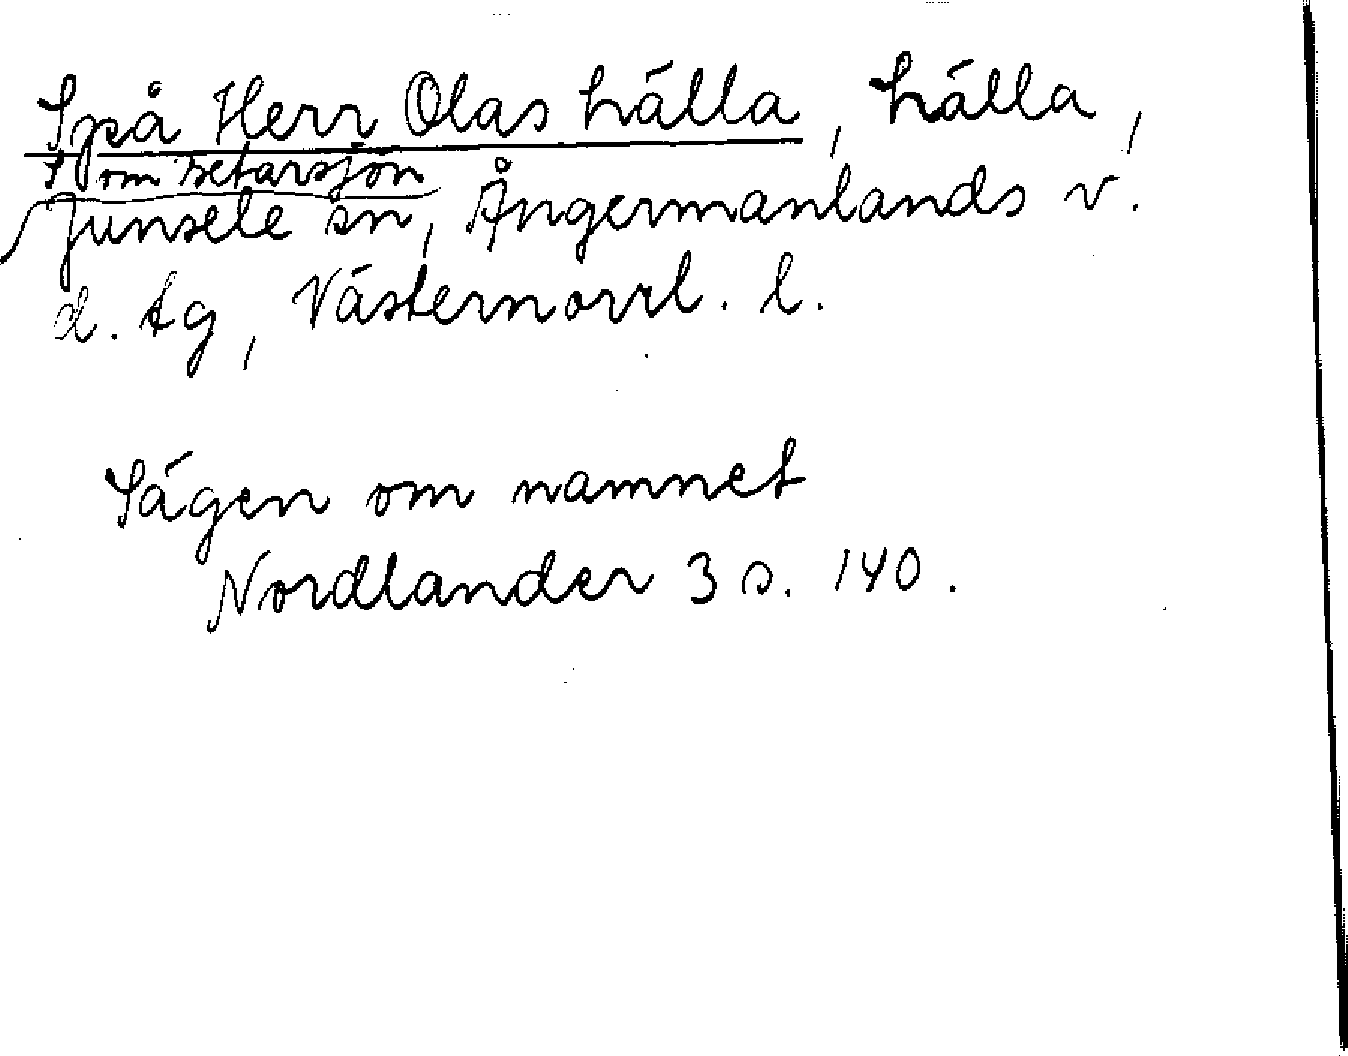 Spå Herr Olas hälla, hälla,
S om Betarsjön
Junsele sn, Ångermanlands v.
d. tg, Västernorrl. l.
Sägen om namnet
Nordlander 3 s. 140.